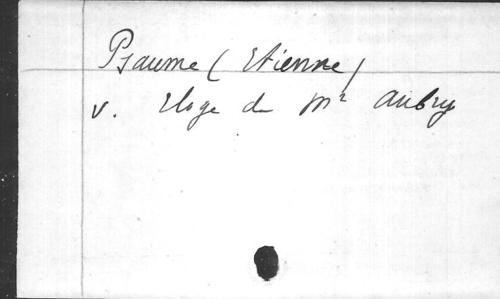 Psaume (Etienne)
v. Eloge de Mr Aubry